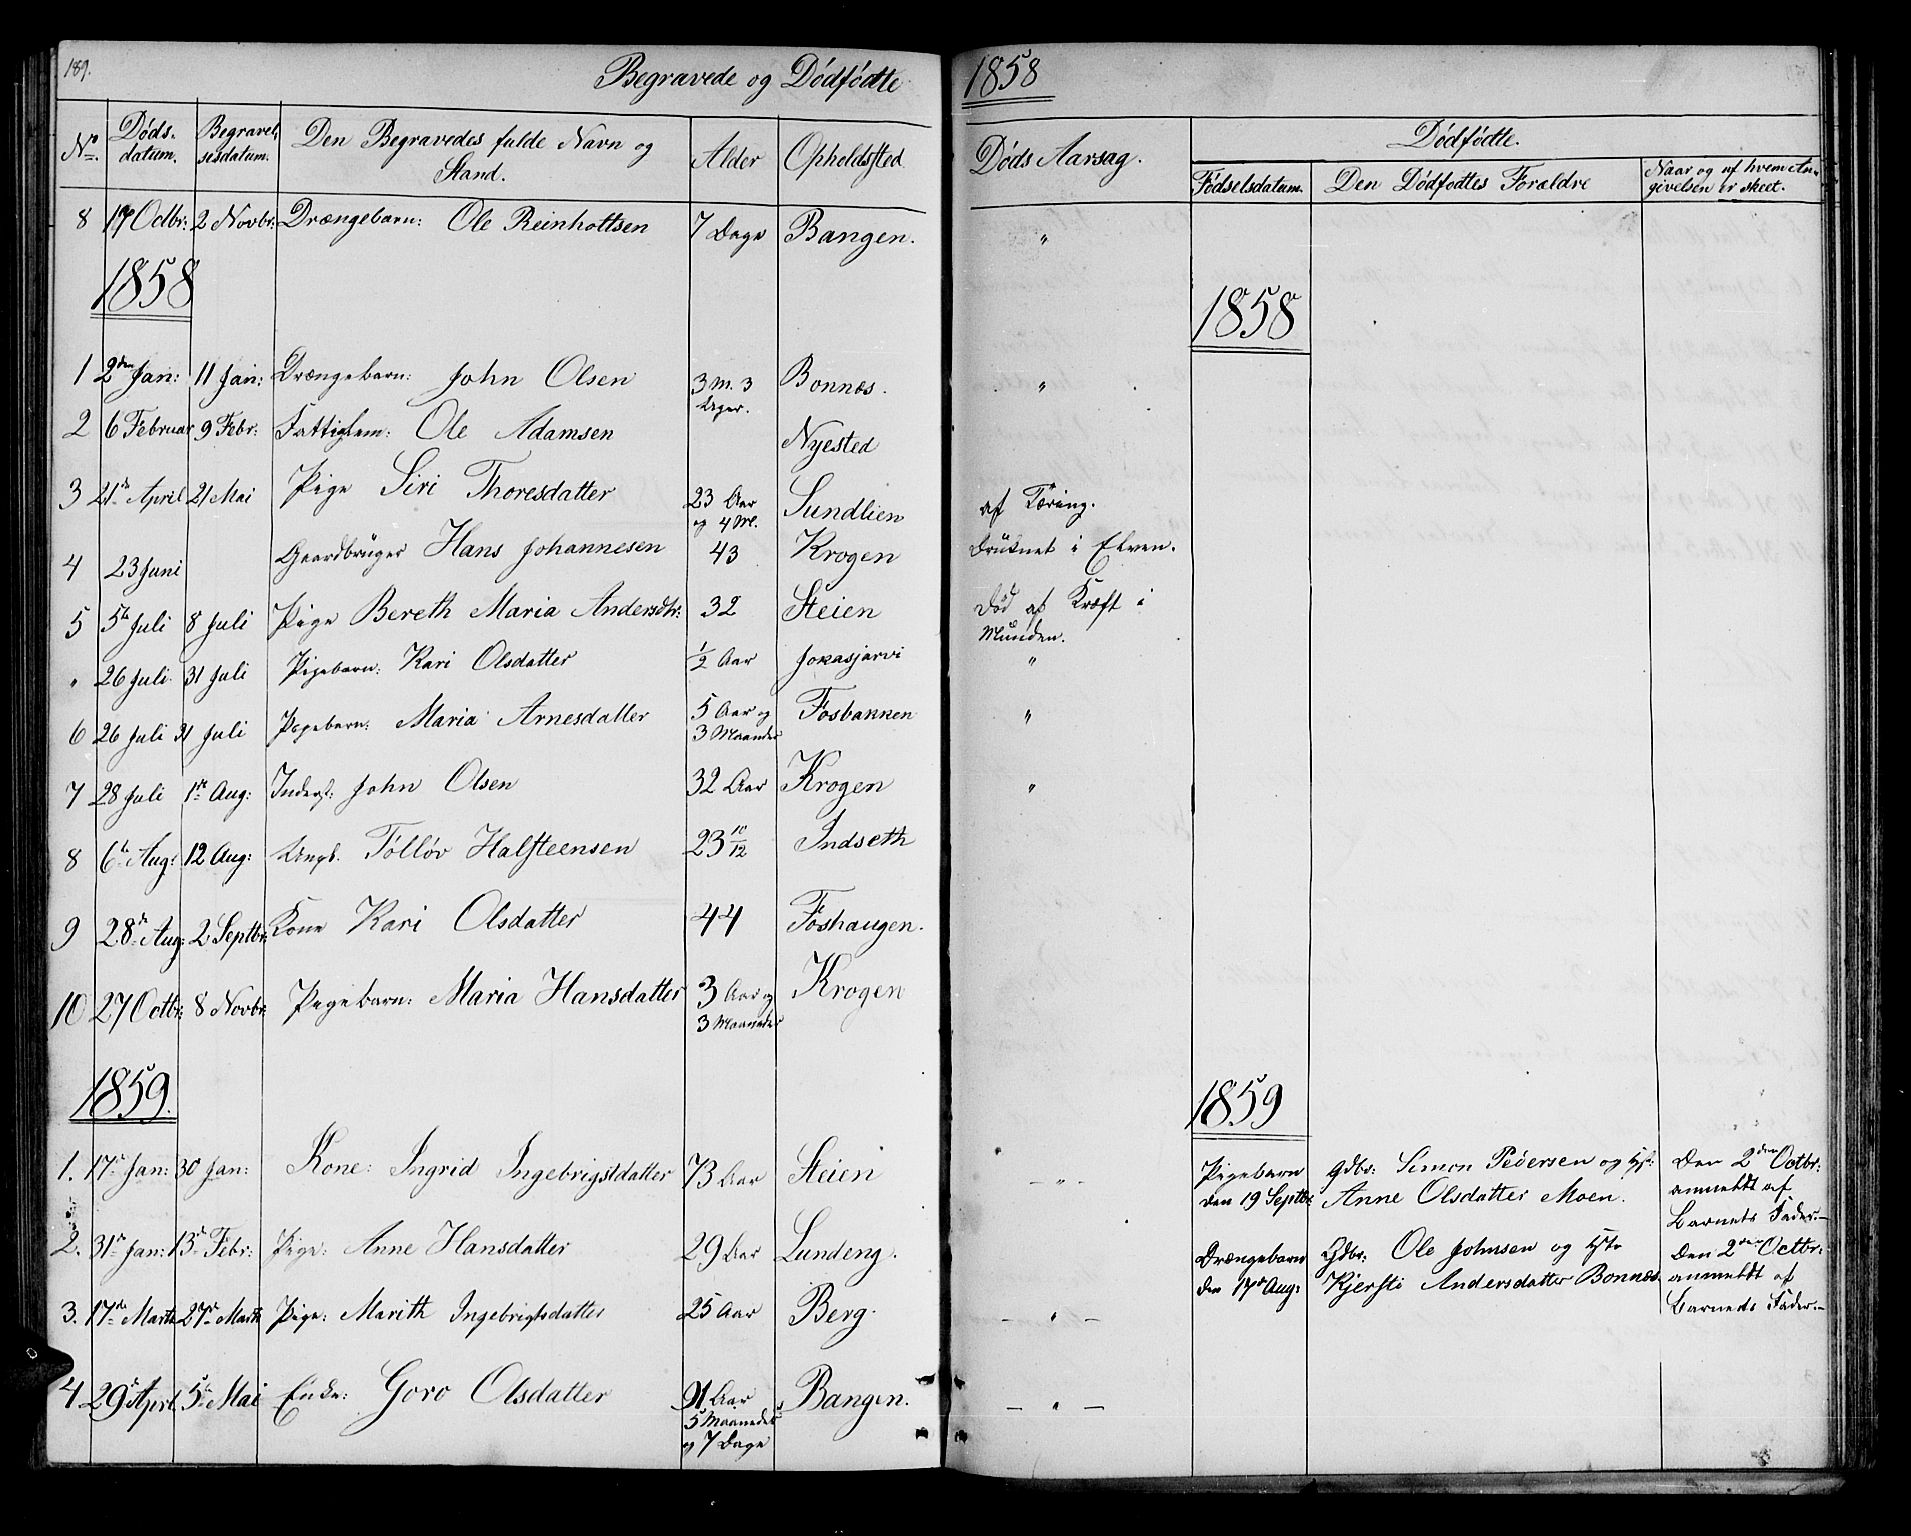 189.
Begravede og Dödfödte
1858
No. Döds-datum. Begravelsesdatum. Den Begravedes fulde Navn og Stand. Alder Opholdssted Döds Aarsag. Dödfödte.
Födselsdatum. Den Dödfödtes Forældre Naar og af hvem Angivelsen er skeet.
8 17 Octbr: 2 Novbr: Drængebarn: Ole Reinholtsen 7 Dage Bangen. "
1858
1858
1 2den Jan: 11 Jan: Drængebarn: John Olsen 3 M. 3 Dager. Bonnæs. "
2 6 Februar 9 Febr: Fattiglem: Ole Adamsen Nyested
3 21de April 21 Mai Pige Siri Thoresdatter 23 Aar og 4 M. Sundlien af Tæring.
4 23 Juni Gaardbruger Hans Johannesen 43 Krogen Druknet i Elven.
5 5te Juli 8 Juli Pige Bereth Maria Andersdtr: 32 Steien Död af Kræft i Munden.
" 26 Juli 31 Juli Pigebarn: Kari Olsdatter 1/2 Aar Jokasjarvi "
6 26 Juli 31 Juli Pigebarn: Maria Arnesdatter 5 Aar og 3 Maaneder Fosbakken "
7 28 Juli 1ste Aug: Inderst: John Olsen 32 Aar Krogen "
8 6te Aug: 12 Aug: Ungk. Tölløv Halsteensen 23 10/12 Indseth
9 28de Aug: 2 Septbr: Kone Kari Olsdatter 44 Foshaugen.
10 27 Octbr: 8 Novbr: Pigebarn: Maria Hansdatter 3 Aar og 3 Maaneder Krogen
1859.
1859
1. 17de Jan: 30 Jan: Kone: Ingrid Ingebrigstdatter 73 Aar Steien - " -
Pigebarn den 19 Septbr: Gdbr: Simon Pedersen og Hst: Anne Olsdatter Moen. Den 2den Octbr: anmeldt af Barnets Fader.-
2. 31te Jan: 13de Febr: Pige: Anne Hansdatter 29 Aar Lundeng.
Drængebarn den 17de Aug: Gdbr: Ole Johnsen og Hst: Kjersti Andersdatter Bonnæs. Den 2den Octbr: anmeldt af Barnets Fader.-
3. 17de Marts 27de Marts Pige: Marith Ingebrigtsdatter 25 Aar Berg. - " -
4 29de April 5te Mai Enke: Goro Olsdatter 91 Aar 5 Maaneder og 7 Dage Bangen. - " -